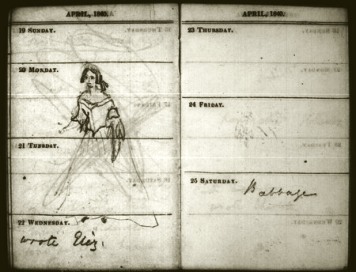 APRIL,
19 SUNDAY.
20 MONDAY.
21 TUESDAY.
22 WEDNESDAY.
wrote Eliz.
APRIL,
23 THURSDAY.
24 FRIDAY.
25 SATURDAY.
Babbage